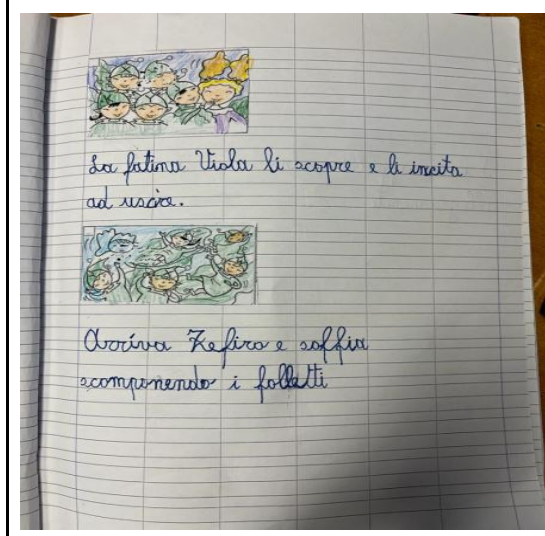 La fatina Viola li scopre e li incita
ad uscire.
Arriva Zefiro e soffia
scomponendo i folletti